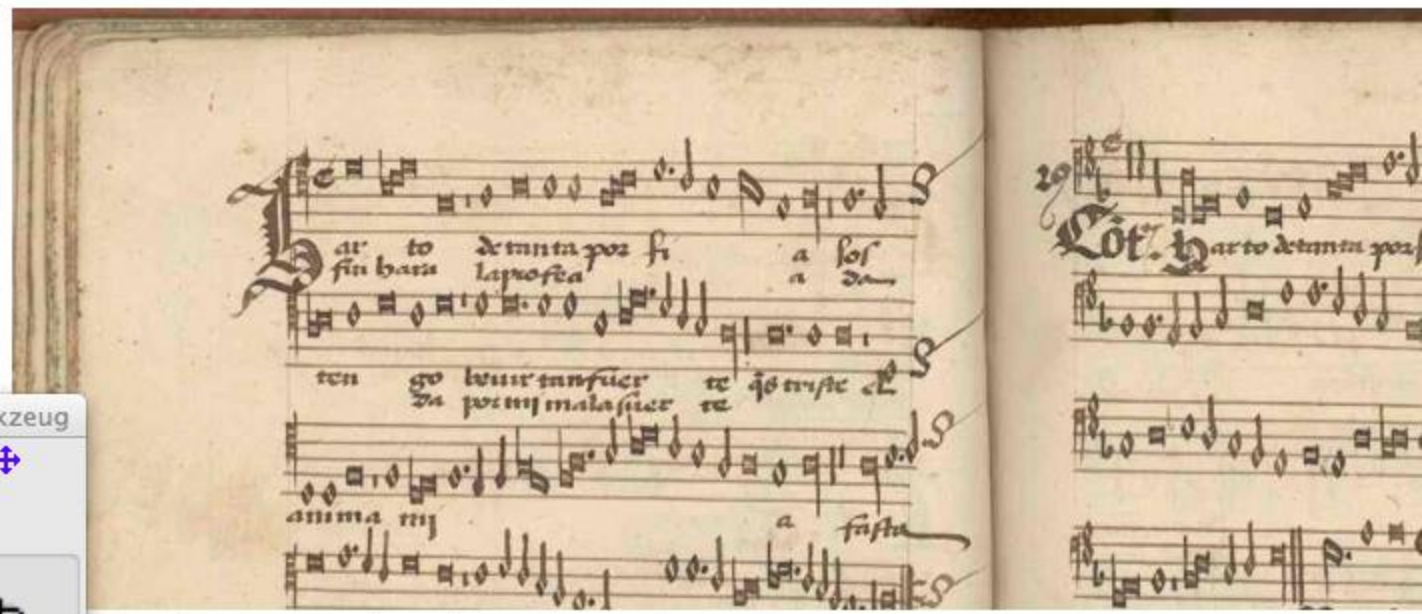 Har to de tanta por fi a sos
fin hara a da
ten go beuir tan suer te q̃s triste el
da por mi mala suer te
anima mi a fasta
20
Cõt. Harto de tanta por
kzeug